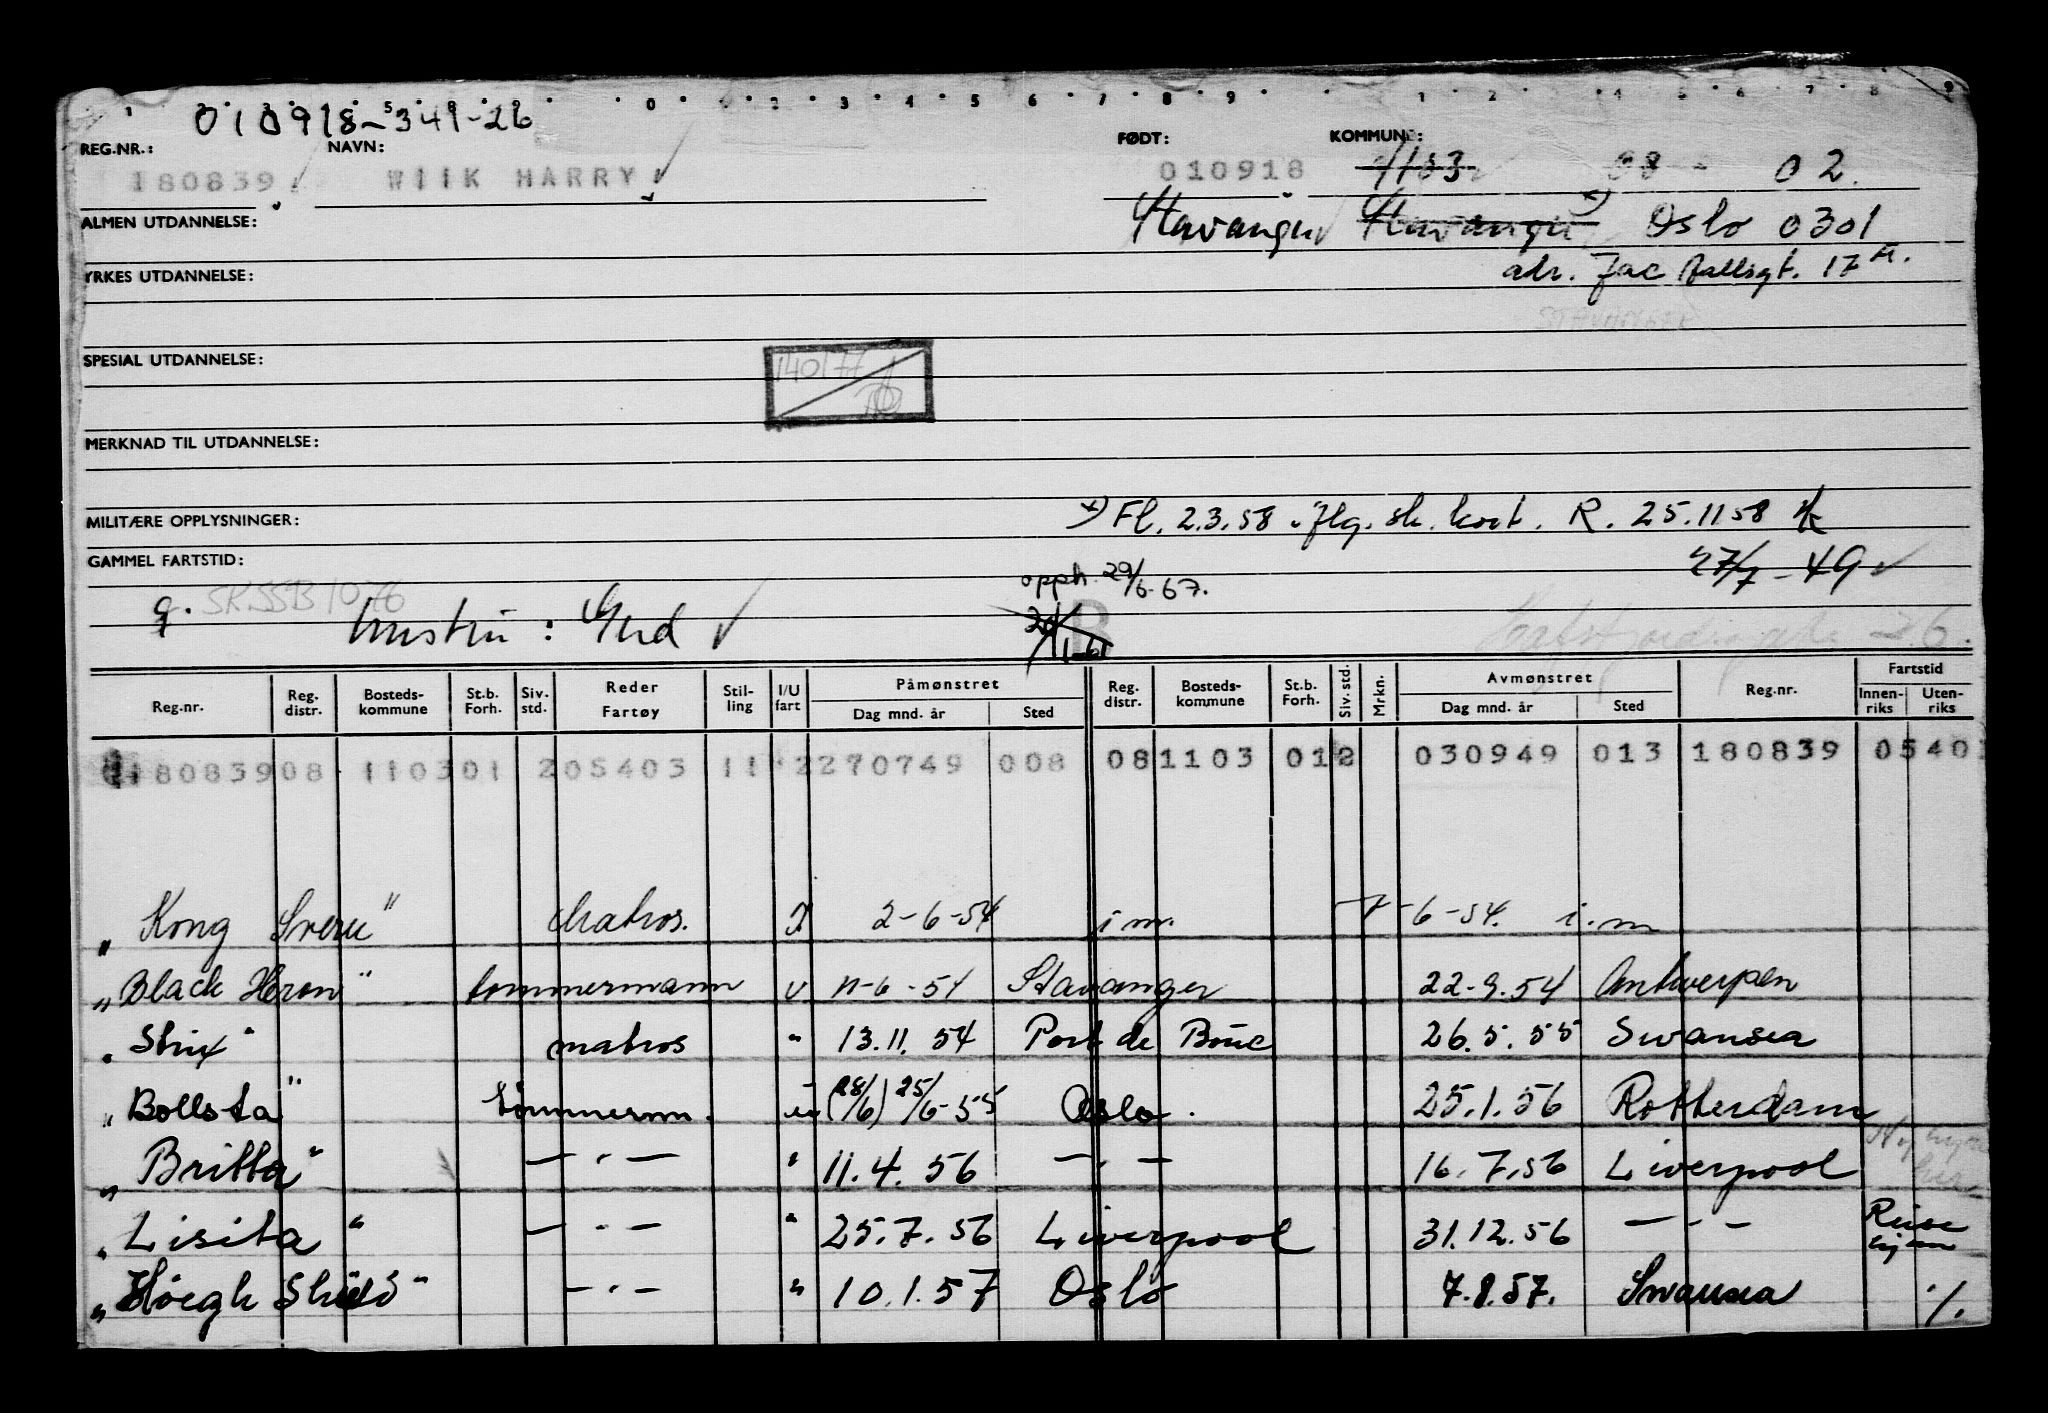 010918-34926
REG.NR.: NAVN: FØDT: KOMMUNE:
180839 WIIK HARRY 010918 1103 08 - 02
ALMEN UTDANNELSE: Stavanger Stavanger x) Oslo 0301
YRKES UTDANNELSE: adr. Jac Aallsgt. 17
STAVANGER
SPESIAL UTDANNELSE: 140177
MERKNAD TIL UTDANNELSE:
MILITÆRE OPPLYSNINGER: x) Fl. 2.3.58 iflg. sk. kort. R. 25.11 58
GAMMEL FARTSTID: 27/7-49
opph. 29/6-67.
q. SKSSB1076
hustru: Gud B
Reg.nr. Reg. distr. Bosteds-kommune St.b. Forh. Siv. std. Reder Fartøy Stil-ling I/U fart Påmønstret Dag mnd. år Sted Reg. distr. Bosteds-kommune St.b. Forh. Siv. std. Mrkn. Avmønstret Dag mnd. år Sted Reg.nr. Fartstid Innen-riks Uten-riks
180839 08 1103 01 2 05403 11 2 270749 008 08 1103 01 2 030949 013 180839 05401
"Kong Sverre" Matros. I 2-6-54 i.m. 7-6-54. i.m
"Black Heron" tømmermann U 11-6-54 Stavanger 22-9.54 Antwerpen
"Strix" matros " 13.11.54 Port de Bouc 26.5.55 Swansea
"Bollsta" tømmerm. u (28/6) 25/6-55 Oslo. 25.1.56 Rotterdam
"Britta" —"— " 11.4.56 —"— 16.7.56 Liverpool
"Lisita" —"— " 25.7.56 Liverpool 31.12.56 —"— Reise hjem
"Höegh Shield" —"— " 10.1.57 Oslo 7.8.57. Swansea ./.